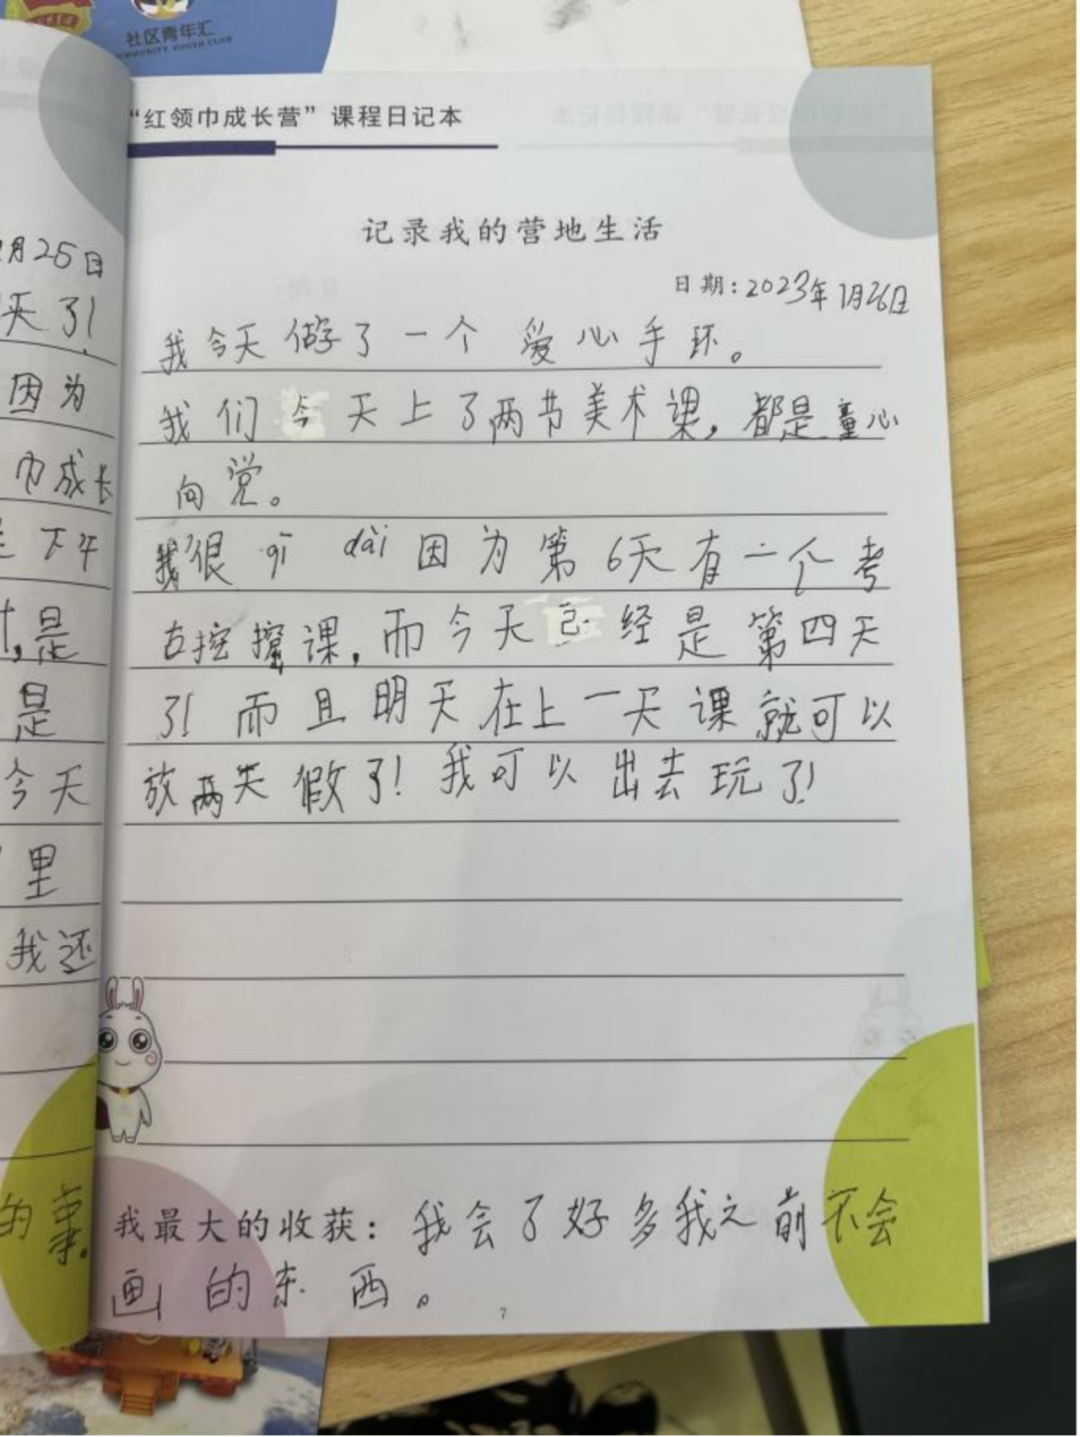 社区青年汇
COMMUNITY YOUTH CLUB
“红领巾成长营”课程日记本
记录我的营地生活
日期：2023年1月26日
我今天做了一个爱心手环。
我们今天上了两节美术课,都是童心
向党。
我很 qī dài 因为第6天有一个考
古挖掘课,而今天已经是第四天
了!而且明天在上一天课就可以
放两天假了!我可以出去玩了!
我最大的收获：我会了好多我之前不会
画的东西。
7
月25日
天了!
因为
巾成长
下午
是
是
今天
里
我还
的事.